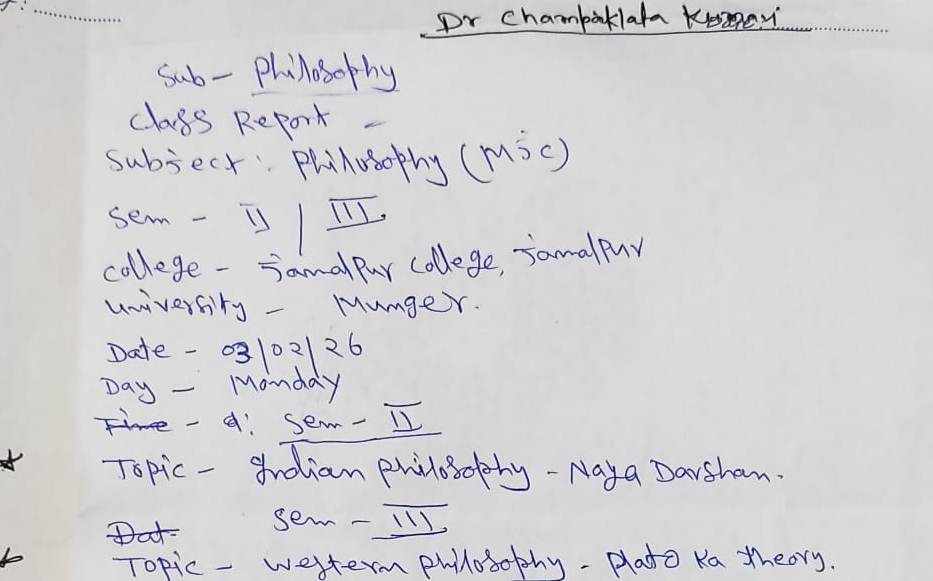 Dr Champaklata Kumari
Sub - Philosophy
Class Report -
Subject : Philosophy (MJC)
Sem - II / III
College - Jamalpur College, Jamalpur
University - Munger.
Date - 03/02/26
Day - Monday
Time - Sem - II
Topic - Indian Philosophy - Naya Darshan.
Dat Sem - III
Topic - Western Philosophy - Plato Ka Theory.